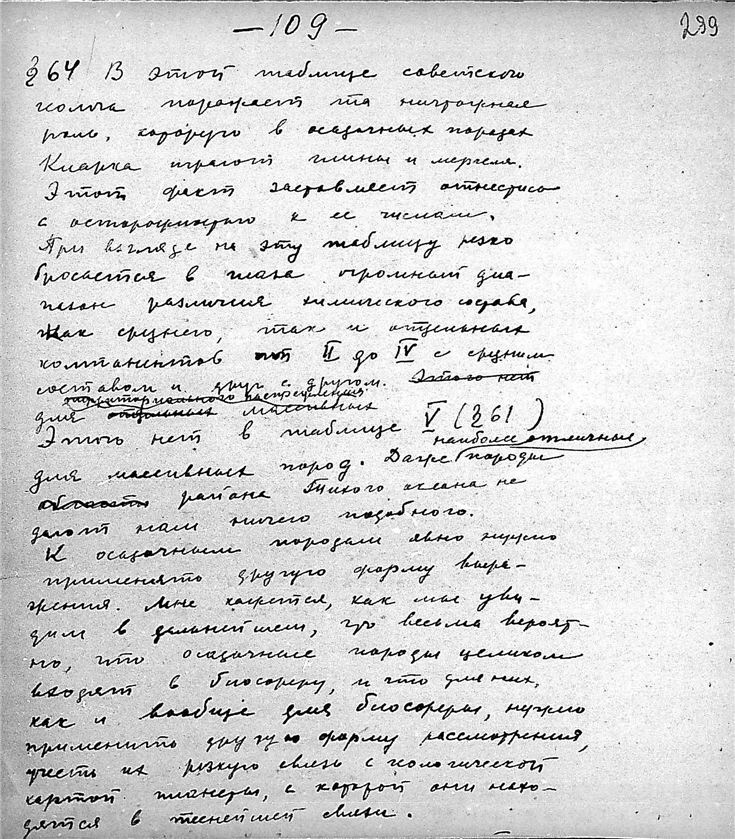 — 109 —
299
§ 64 В этой таблице советского
колча поражает та ничтожная
роль, которую в осадочных породах
Кларка играют глины и мергеля.
Этот факт заставляет отнестись
с осторожностью к ее числам.
При взгляде на эту таблицу резко
бросается в глаза огромный диа-
пазон различия химического состава,
как среднего, так и отдельных
компонентов от II до IV с средним
составом и друг с другом. Этого нет
территориального распределения
для отдельных массивных
Этого нет в таблице V (§ 61)
наиболее отличные
для массивных пород. Даже породы
области района Тихого океана не
дают нам ничего подобного.
К осадочным породам явно нужно
применять другую форму выра-
жения. Мне кажется, как мы уви-
дим в дальнейшем, что весьма вероят-
но, что осадочные породы целиком
входят в биосферу, и что для них,
как и вообще для биосферы, нужно
применить другую форму рассмотрения,
учесть их резкую связь с геологической
картой планеты, с которой они нахо-
дятся в теснейшей связи.